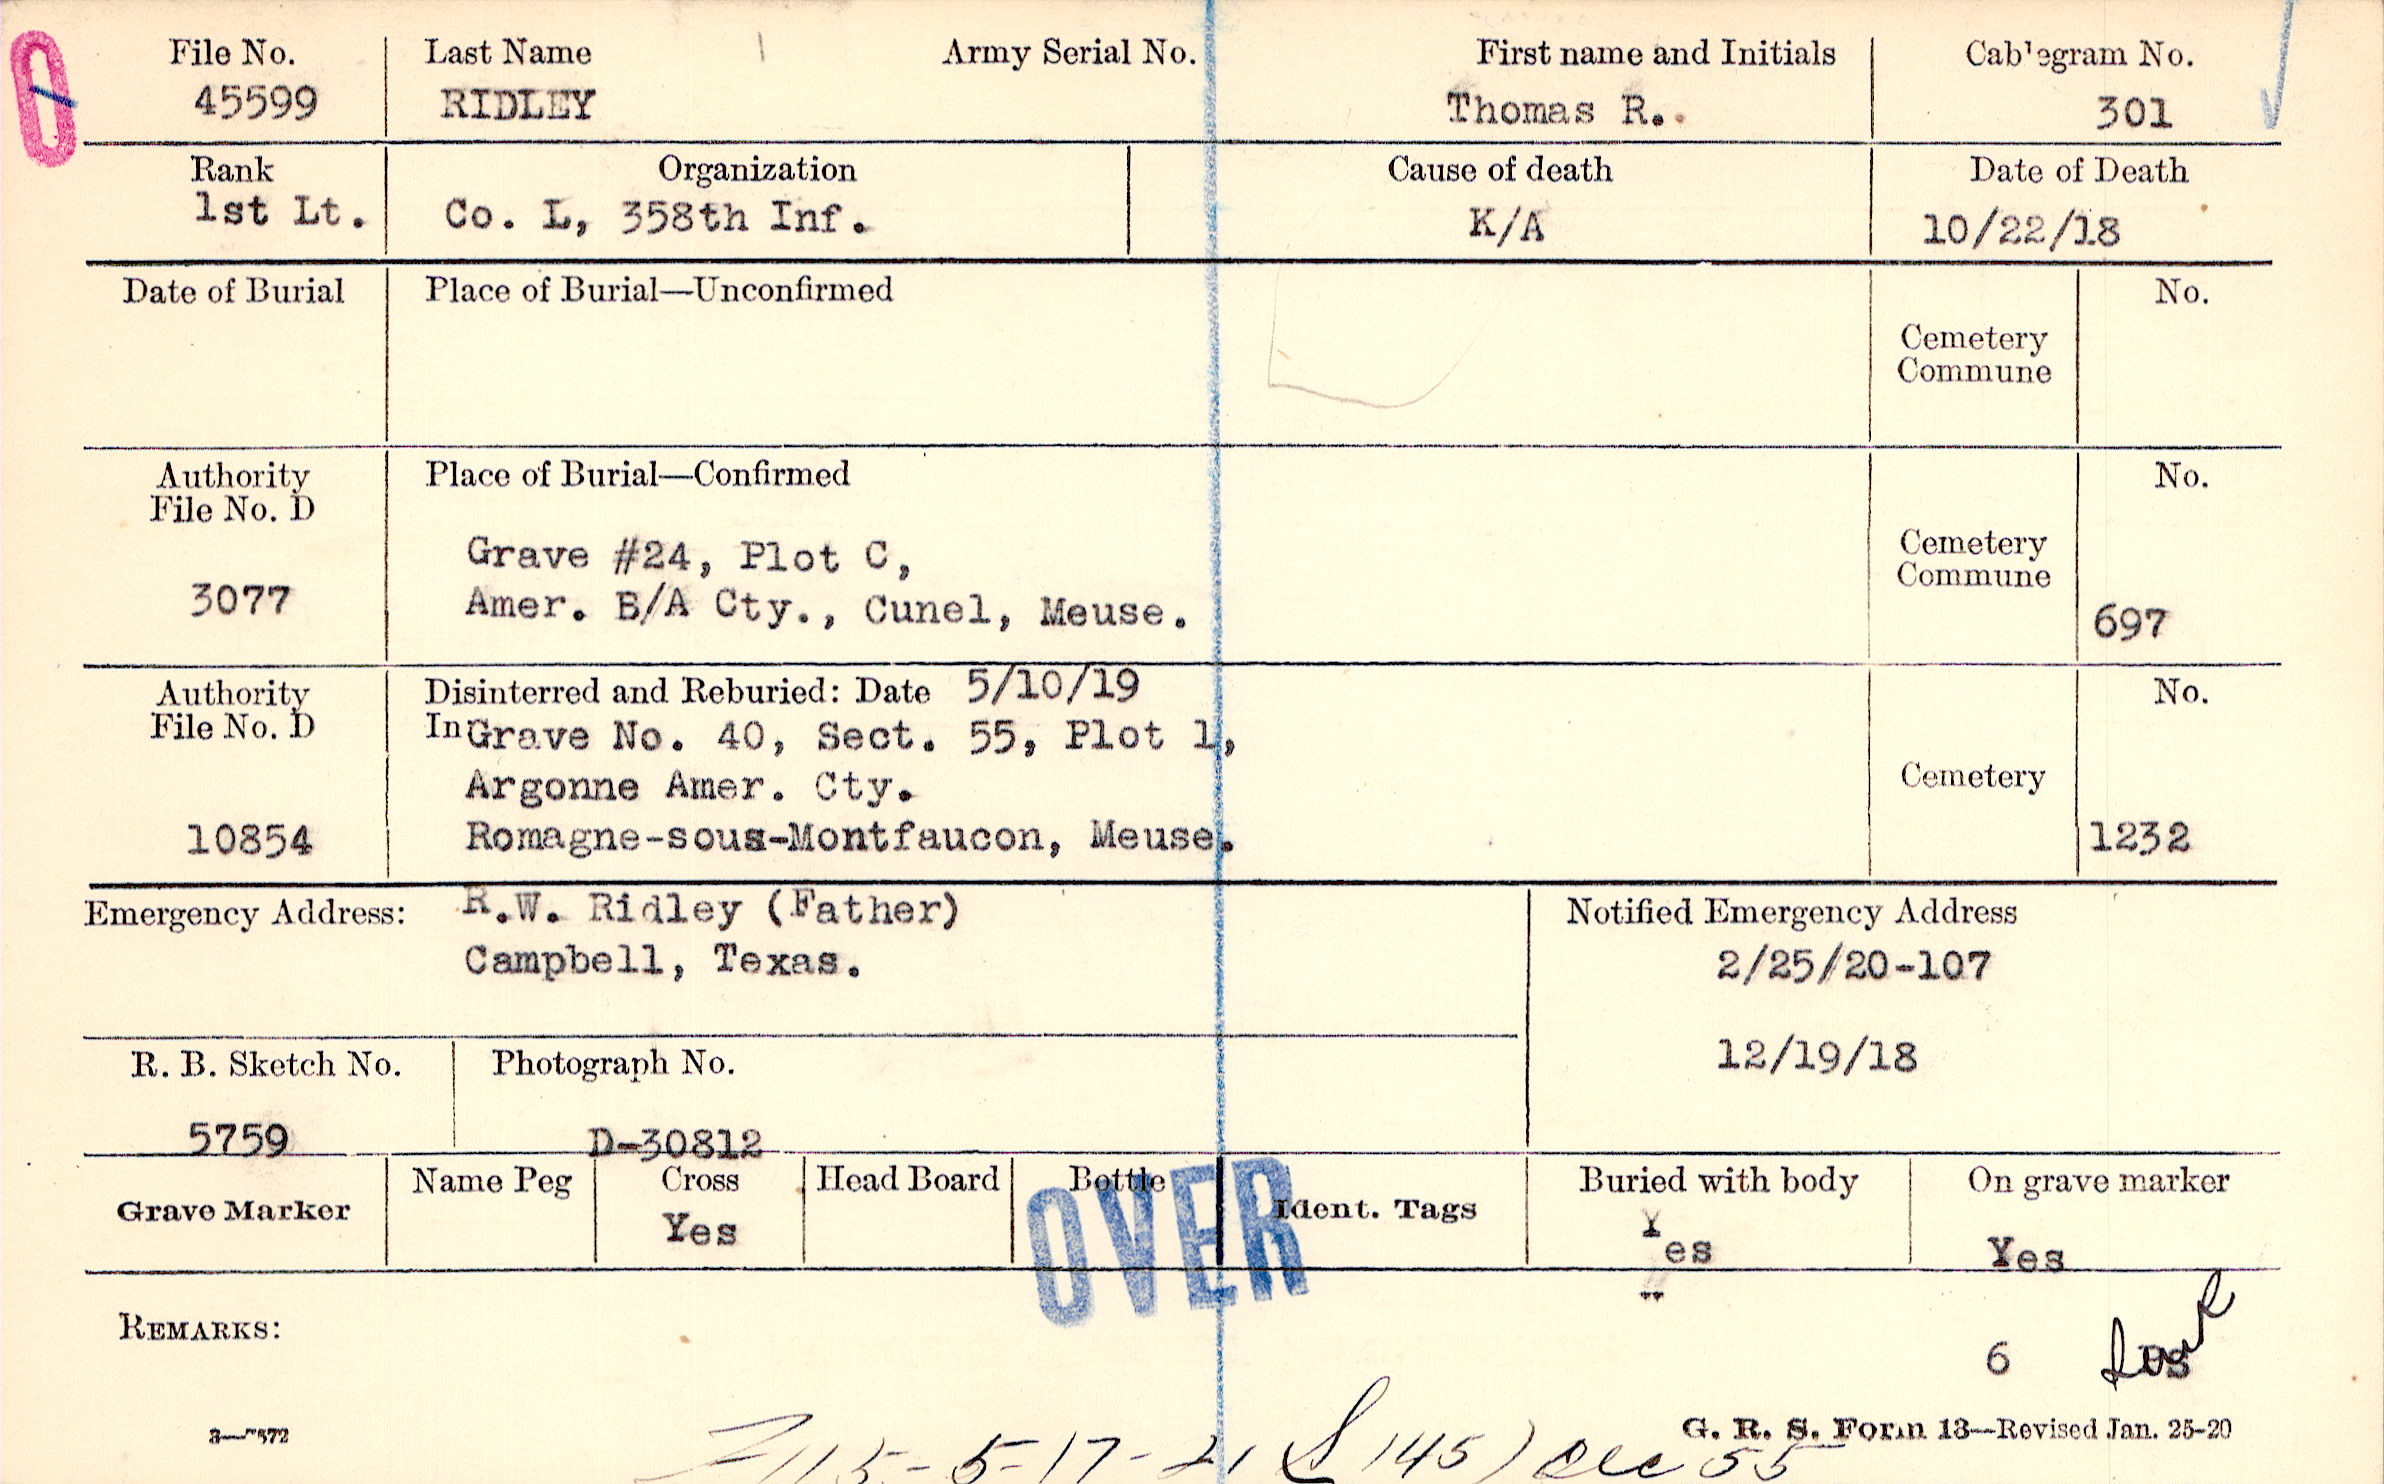 File No. Last Name Army Serial No. First name and Initials Cablegram No.
45599 RIDLEY Thomas R. 301
Rank Organization Cause of death Date of Death
1st Lt. Co. L, 358th Inf. K/A 10/22/18
Date of Burial Place of Burial—Unconfirmed No.
Cemetery
Commune
Authority Place of Burial—Confirmed No.
File No. D
Grave #24, Plot C, Cemetery
Commune
3077 Amer. B/A Cty., Cunel, Meuse. 697
Authority Disinterred and Reburied: Date 5/10/19 No.
File No. D In Grave No. 40, Sect. 55, Plot 1,
Argonne Amer. Cty. Cemetery
10854 Romagne-sous-Montfaucon, Meuse. 1232
Emergency Address: R.W. Ridley (Father) Notified Emergency Address
Campbell, Texas. 2/25/20-107
12/19/18
R. B. Sketch No. Photograph No.
5759 D-30812
Grave Marker Name Peg Cross Head Board Bottle Ident. Tags Buried with body On grave marker
Yes Yes Yes
OVER
REMARKS:
6
G. R. S. Form 13—Revised Jan. 25-20
5-17-21